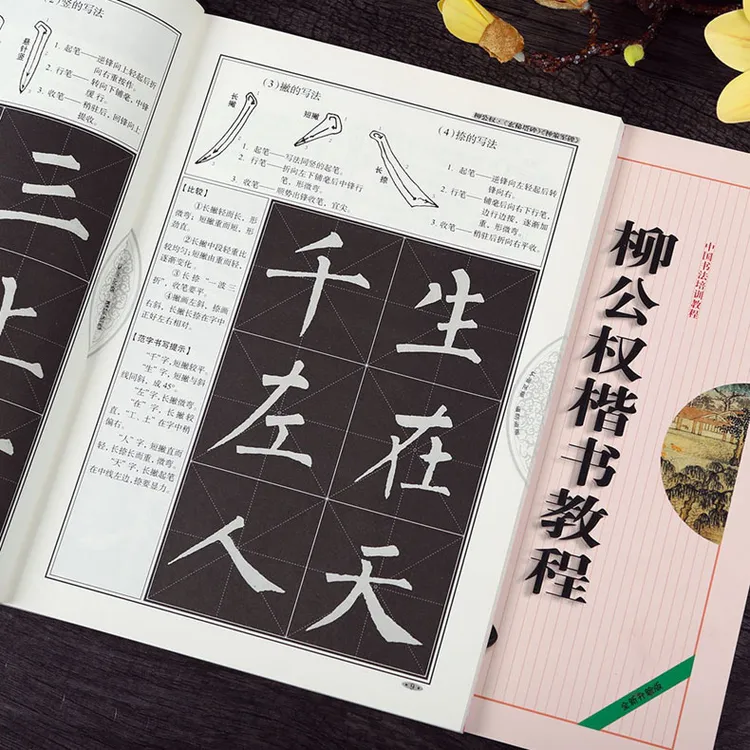 (2)竖的写法
悬针竖
1. 起笔——逆锋向上轻起后折
向右重按作。
2. 行笔——转向下铺毫,中锋
缓行。
3. 收笔——稍驻后,回锋向上
提收。
三
上
柳公权·《玄秘塔碑》《神策军碑》
(3)撇的写法
长撇
短撇
1. 起笔——写法同竖的起笔。
2. 行笔——折向左下铺毫后中锋行
笔,形微弯。
3. 收笔——顺势出锋收笔,宜尖。
(4)捺的写法
长捺
1. 起笔——逆锋向左轻起后转
锋向右。
2. 行笔——铺毫后向右下行笔,
边行边按,逐渐加
重,形微弯。
3. 收笔——稍驻后折向右平收。
【比较】
①长撇轻而长,形
微弯;短撇重而短,形
劲直。
②长撇中段轻重比
较均匀;短撇由重而轻,
逐渐变化。
③长捺“一波三
折”,收笔要平。
④撇画左斜,捺画
右斜,长撇长捺在字中
正好左右相对。
【范字书写提示】
“千”字,短撇较平。
“生”字,短撇与斜
线同斜,成45°。
“左”字,长撇微弯。
“在”字,长撇较
直,“工、土”在字中稍
偏右。
“人”字,短撇直而
轻,长捺长而重,微弯。
“天”字,长撇起笔
在中线左边,捺要显力。
千生
左在
人天
9
中国书法培训教程
柳公权楷书教程
全新升级版